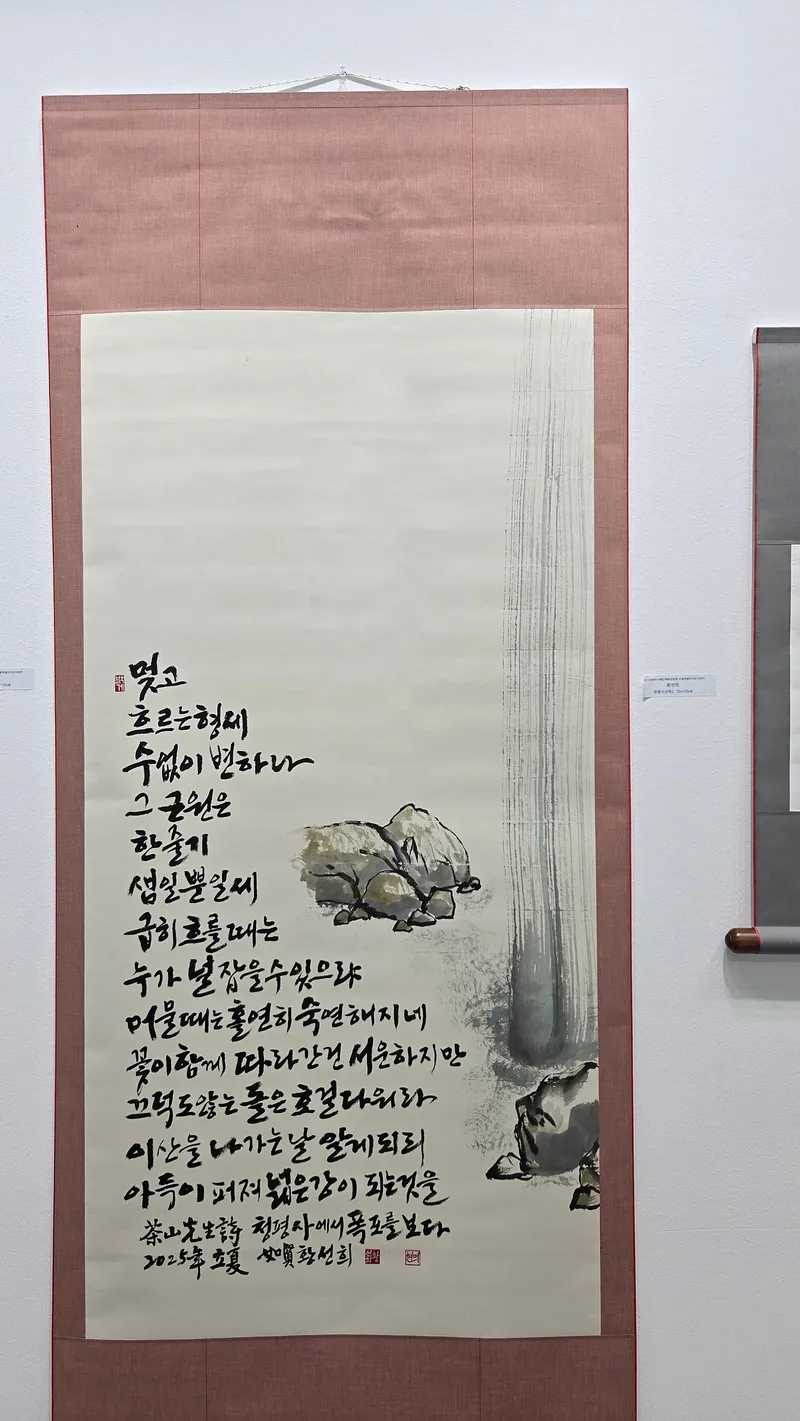 멎고
흐르는 형세
수없이 변하나
그 근원은
한 줄기
샘일 뿐일세
급히 흐를 때는
누가 널 잡을 수 있으랴
머물 때는 홀연히 숙연해지네
꽃이 함께 따라간건 서운하지만
끄덕도 않는 돌은 호걸다워라
이 산을 나가는 날 알게 되리
아득이 퍼져 넓은 강이 되는 것을
茶山先生詩 청평사에서 폭포를 보다
2025年 立夏 황선희